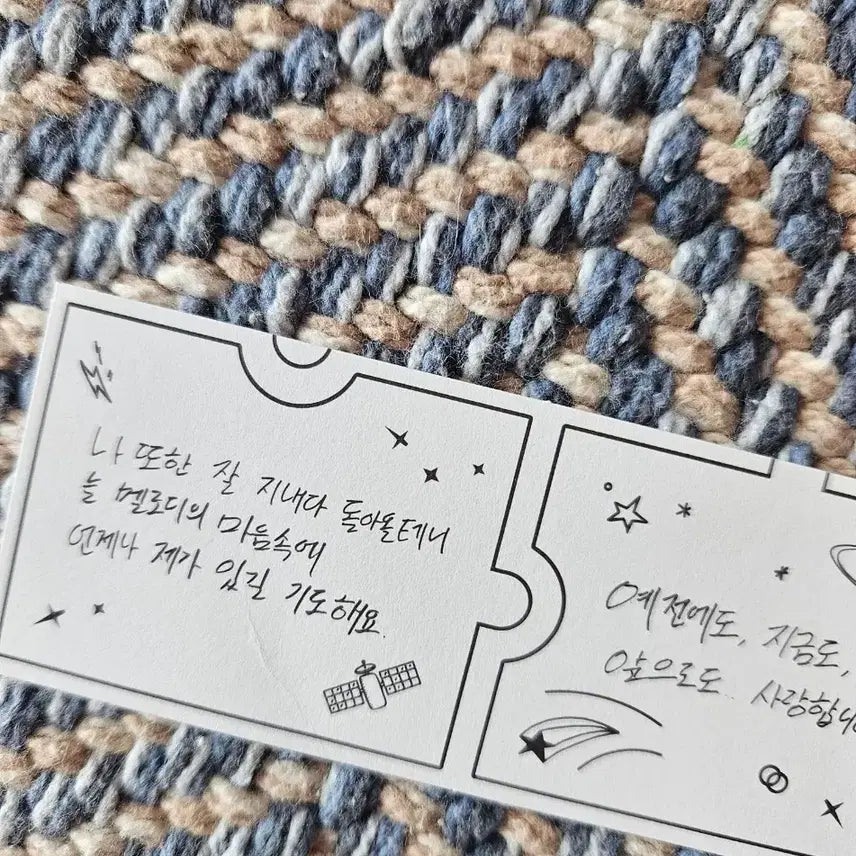 나 또한 잘 지내다 돌아올테니
늘 멜로디의 마음속에
언제나 제가 있길 기도해요.
예전에도, 지금도,
앞으로도.. 사랑합니다